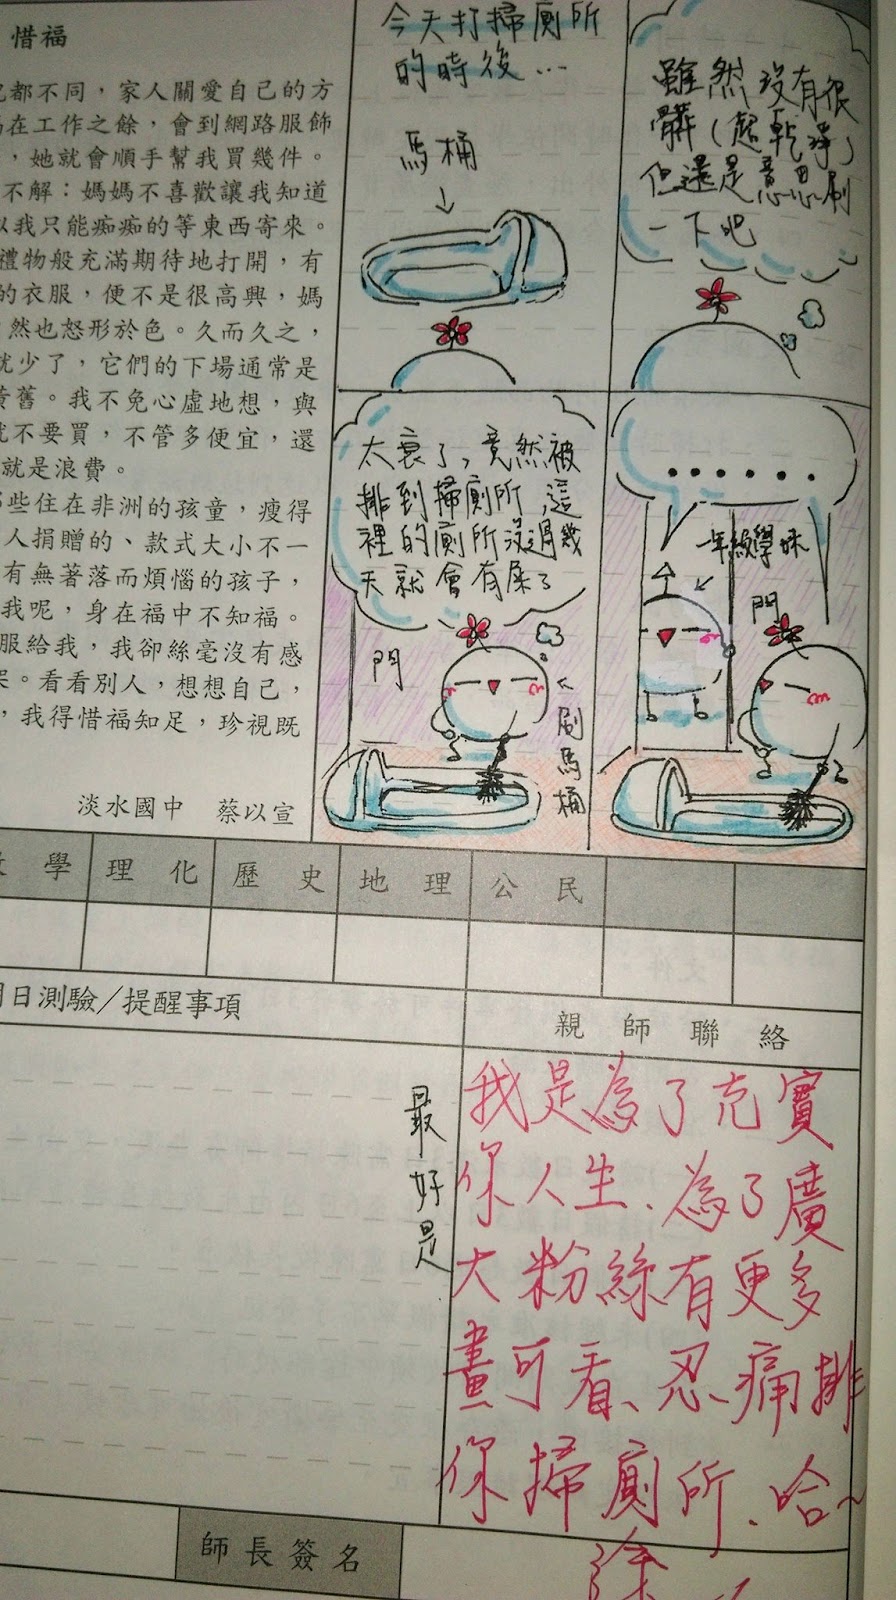 惜福
都不同，家人關愛自己的方
在工作之餘，會到網路服飾
，她就會順手幫我買幾件。
不解：媽媽不喜歡讓我知道
以我只能痴痴的等東西寄來。
禮物般充滿期待地打開，有
的衣服，便不是很高興，媽
然也怒形於色。久而久之，
就少了，它們的下場通常是
黃舊。我不免心虛地想，與
就不要買，不管多便宜，還
就是浪費。
那些住在非洲的孩童，瘦得
人捐贈的、款式大小不一
有無著落而煩惱的孩子，
我呢，身在福中不知福。
服給我，我卻絲毫沒有感
。看看別人，想想自己，
，我得惜福知足，珍視既
淡水國中 蔡以宣
今天打掃廁所
的時後...
馬桶
↓
雖然沒有很
髒(超乾淨)
但還是意思刷
一下吧
太衰了,竟然被
排到掃廁所,這
裡的廁所沒過幾
天就會有屎了
門
刷馬桶
......
一年級學妹
門
學 理化 歷史 地理 公民
日測驗／提醒事項
親師聯絡
最好是
我是為了充實
你人生、為了廣
大粉絲有更多
畫可看、忍痛排
你掃廁所、哈~
師長簽名